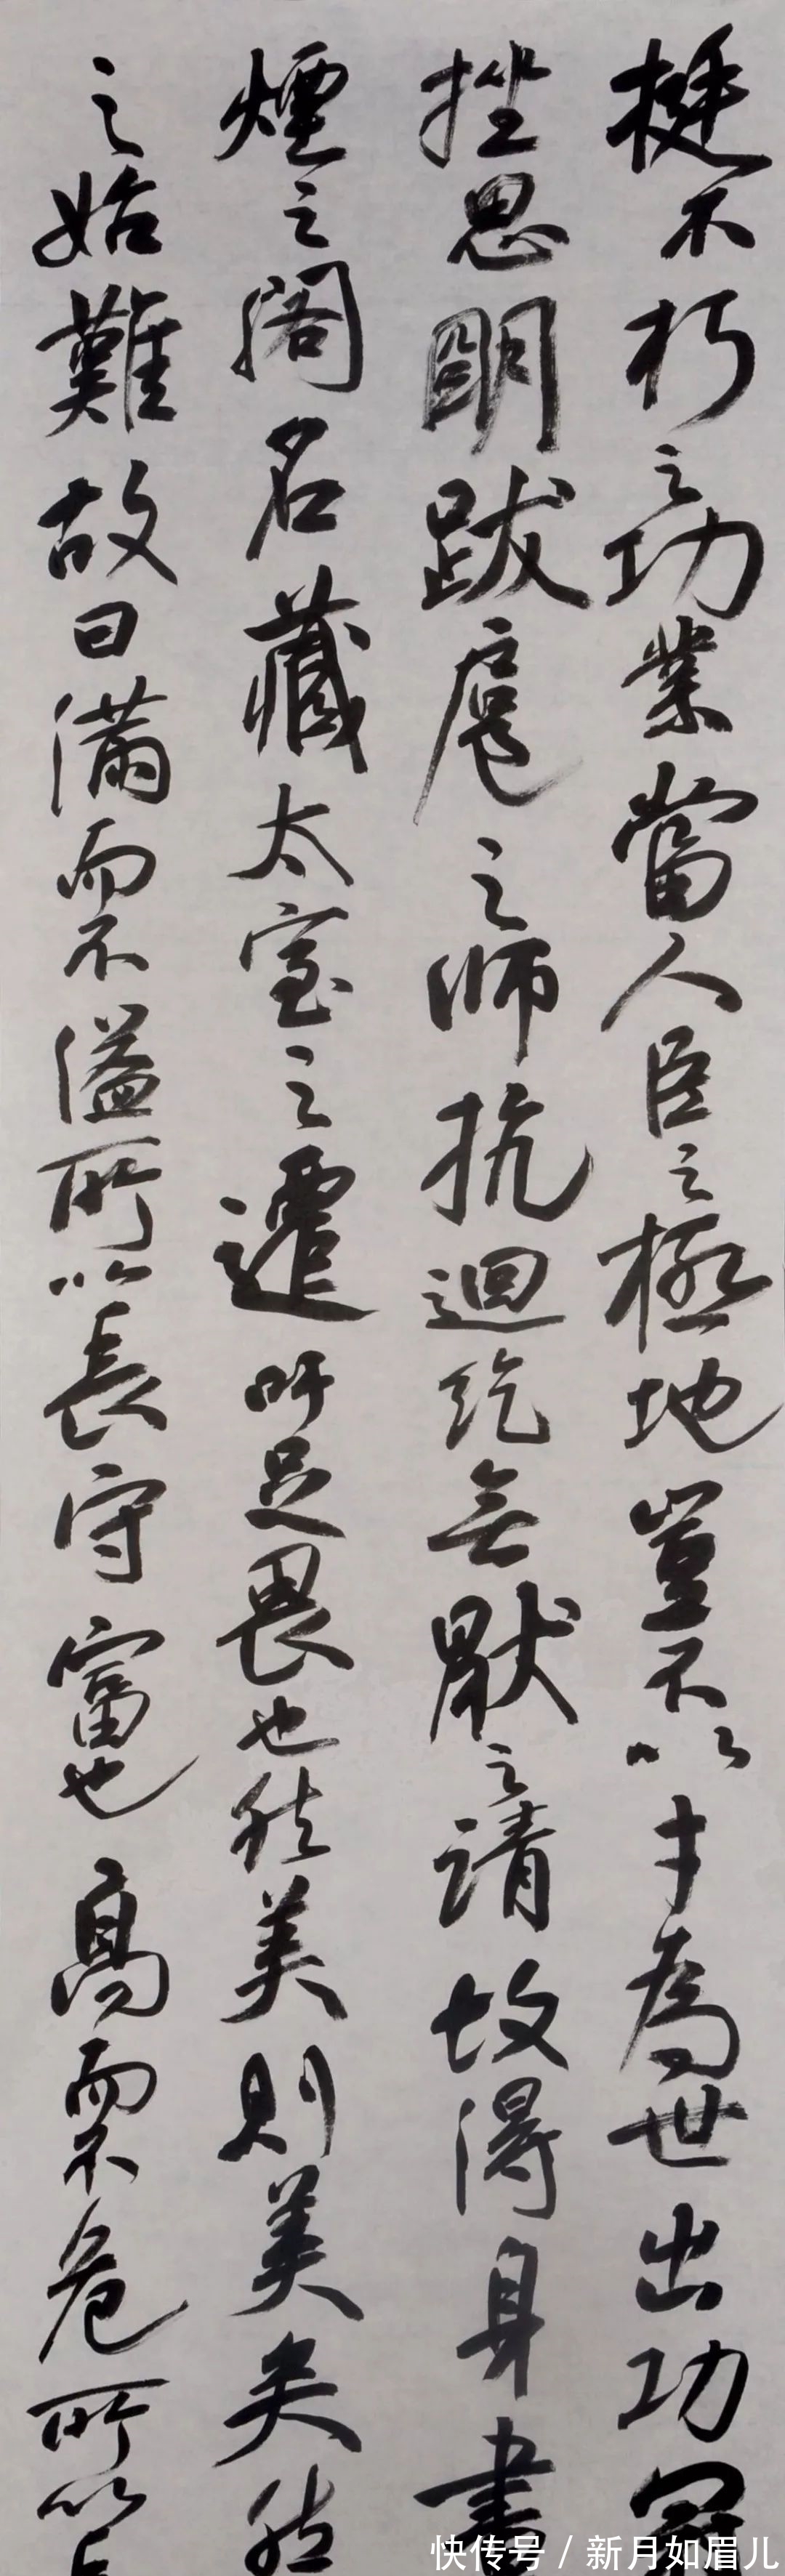 挺不朽之功業當人臣之極地豈不以才為世出功冠
挫思明跋扈之師抗迴紇無厭之請故得身書
煙之閣名藏太室之遷吁足畏也然美則美矣然
之始難故曰滿而不溢所以長守富也高而不危所以長
快传号 / 新月如眉儿